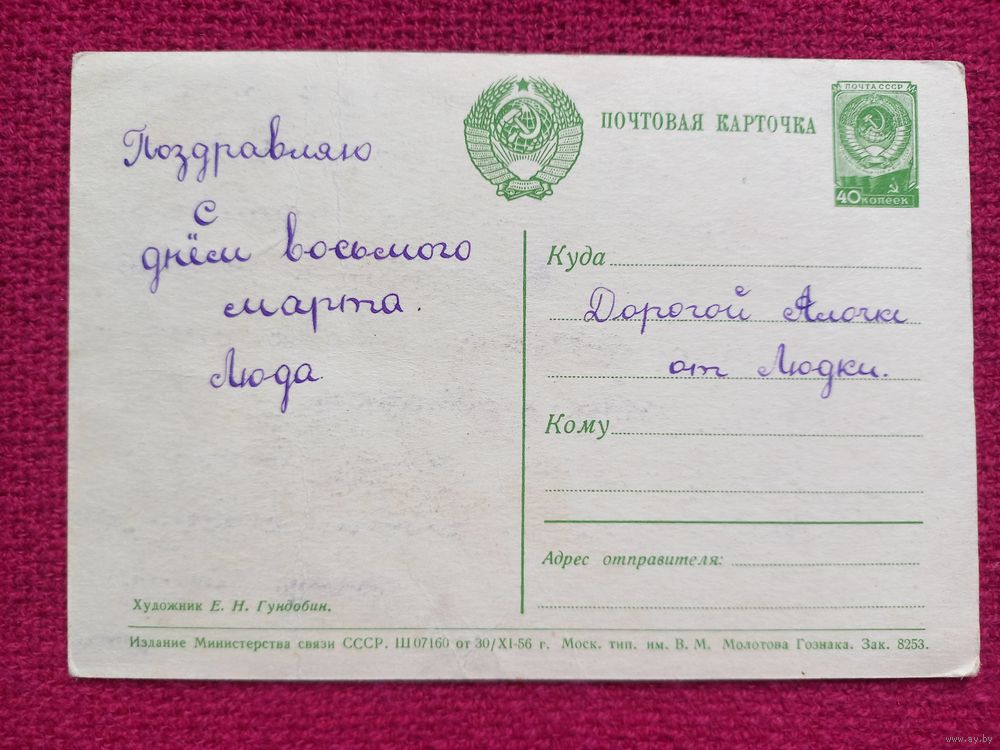 ПОЧТА СССР
40 копеек
ПОЧТОВАЯ КАРТОЧКА
Поздравляю
с
днём восьмого
марта.
Люда
Куда
Дорогой Алочки
от Людки.
Кому
Адрес отправителя:
Художник Е. Н. Гундобин.
Издание Министерства связи СССР. Ш 07160 от 30/XI-56 г. Моск. тип. им. В. М. Молотова Гознака. Зак. 8253.
www.ay.by